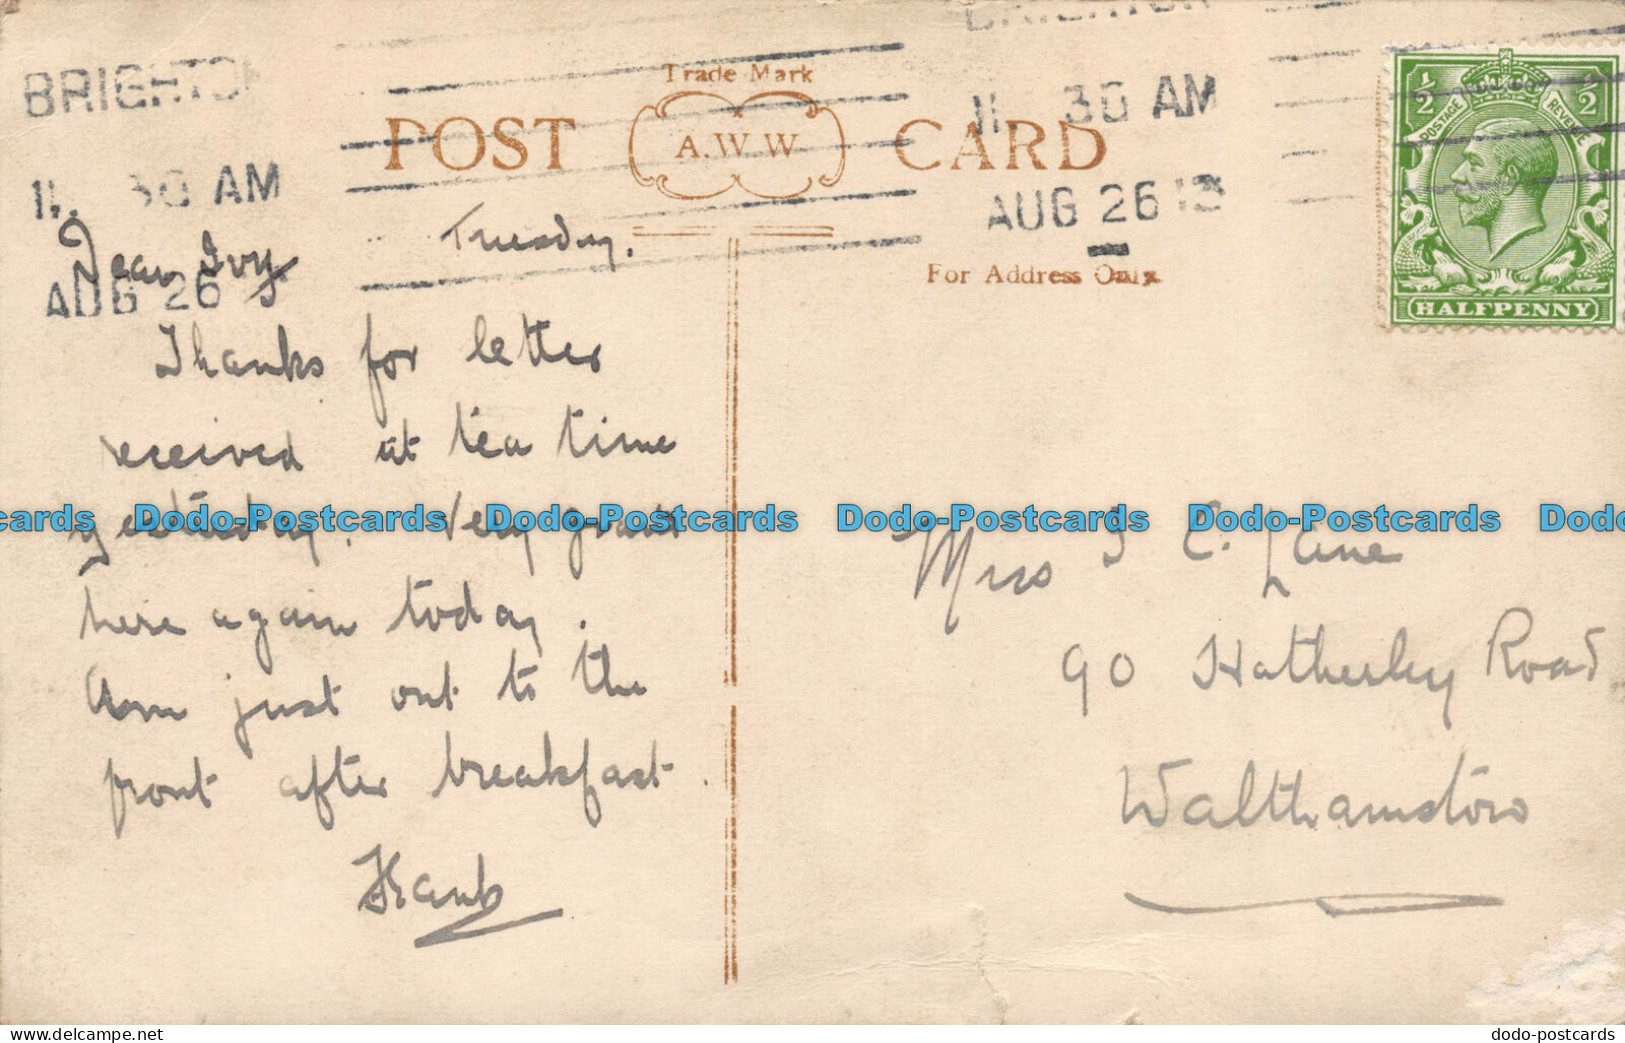 BRIGHTON
11. 30 AM
AUG 26
BRIGHTON
11. 30 AM
AUG 26 13
Trade Mark
POST A.W.W. CARD
For Address Only
1/2 1/2
POSTAGE REVENUE
HALFPENNY
Tuesday.
Dear Ivy
Thanks for letter
received at tea time
yesterday. Very grand
here again today.
Am just out to the
front after breakfast.
Frank
Miss I E. Lane
90 Hatherley Road
Walthamstow
cards Dodo-Postcards Dodo-Postcards Dodo-Postcards Dodo-Postcards Dodo
dodo-postcards
dodo-postcards